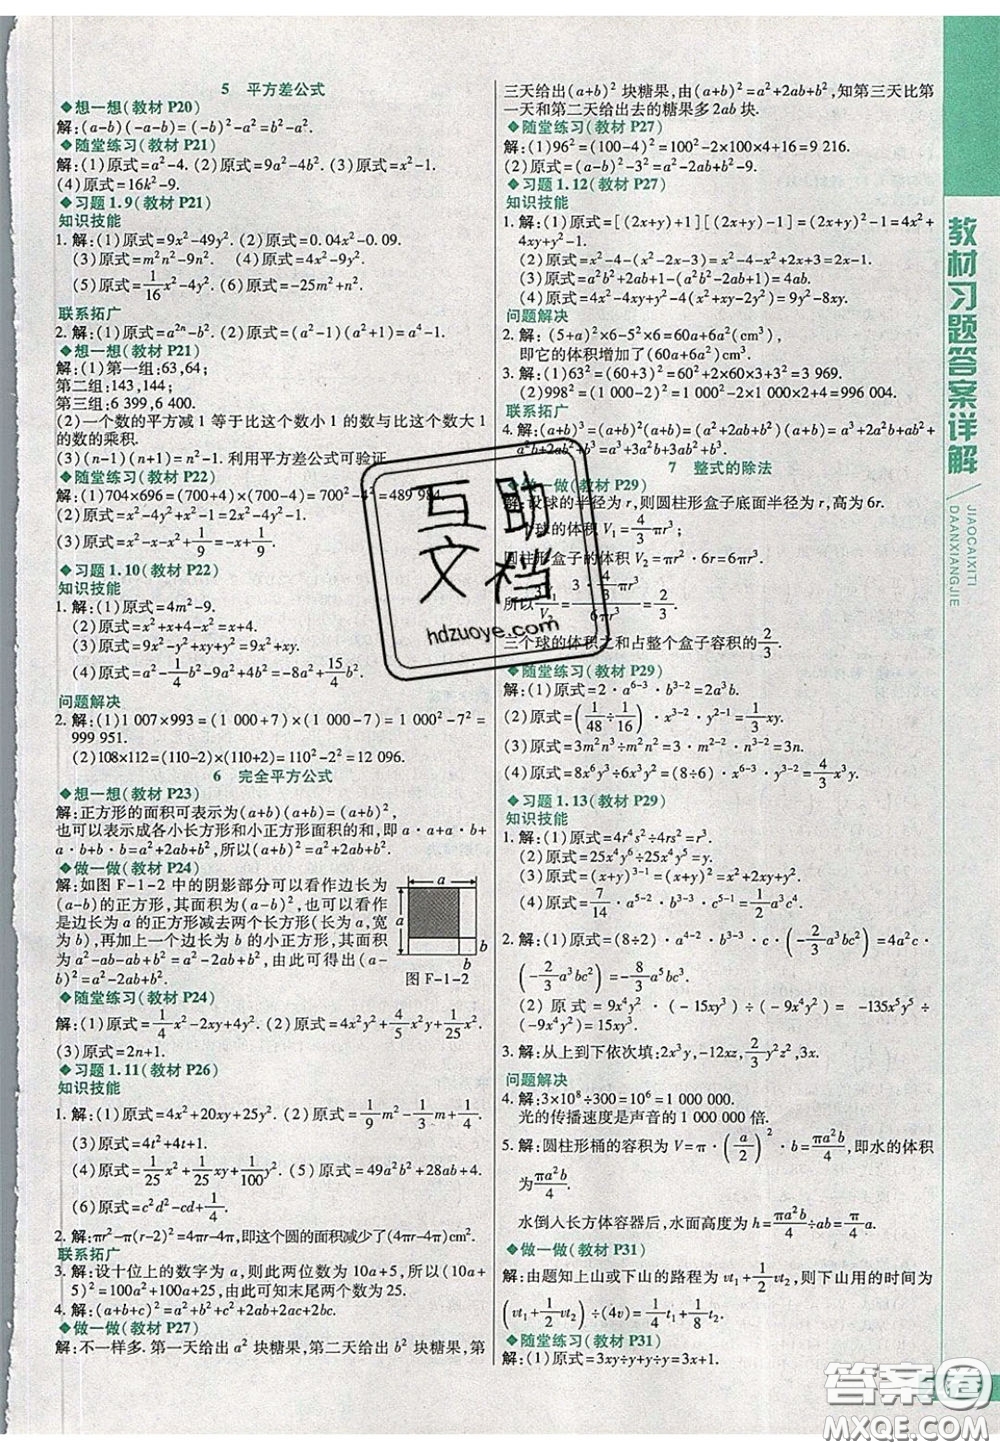 5 平方差公式
◆想一想(教材P20)
解:(a-b)(-a-b)=(-b)²-a²=b²-a².
◆随堂练习(教材P21)
解:(1)原式=a²-4. (2)原式=9a²-4b². (3)原式=x²-1.
(4)原式=16k²-9.
◆习题1.9(教材P21)
知识技能
1. 解:(1)原式=9x²-49y². (2)原式=0.04x²-0.09.
(3)原式=m²n²-9n². (4)原式=4x²-25y².
(5)原式=1/16x²-4y². (6)原式=-25m²+n².
联系拓广
2. 解:(1)原式=a²ⁿ-b². (2)原式=(a²-1)(a²+1)=a⁴-1.
◆想一想(教材P21)
解:(1)第一组:63,64;
第二组:143,144;
第三组:6 399,6 400.
(2)一个数的平方减1等于比这个数小1的数与比这个数大1
的数的乘积.
(3)(n-1)(n+1)=n²-1. 利用平方差公式可验证.
◆随堂练习(教材P22)
解:(1)704×696=(700+4)(700-4)=700²-4²=489 984.
(2)原式=x²-4y²+x²-1=2x²-4y²-1.
(3)原式=x²-x-x²+1/9=-x+1/9.
◆习题1.10(教材P22)
知识技能
1. 解:(1)原式=4m²-9.
(2)原式=x²+x+4-x²=x+4.
(3)原式=9x²-y²+xy+y²=9x²+xy.
(4)原式=a²-1/4b²-9a²+4b²=-8a²+15/4b².
问题解决
2. 解:(1)1 007×993=(1 000+7)×(1 000-7)=1 000²-7²=
999 951.
(2)108×112=(110-2)×(110+2)=110²-2²=12 096.
6 完全平方公式
◆想一想(教材P23)
解:正方形的面积可表示为(a+b)(a+b)=(a+b)²,
也可以表示成各小长方形和小正方形面积的和,即a·a+a·b+
a·b+b·b=a²+2ab+b²,所以(a+b)²=a²+2ab+b².
◆做一做(教材P24)
解:如图F-1-2中的阴影部分可以看作边长为
(a-b)的正方形,其面积为(a-b)²,也可以看作
是边长为a的正方形减去两个长方形(长为a,宽
为b),再加上一个边长为b的小正方形,其面积
为a²-ab-ab+b²=a²-2ab+b²,由此可得出(a-
b)²=a²-2ab+b².
a
a
b
b
图F-1-2
◆随堂练习(教材P24)
解:(1)原式=1/4x²-2xy+4y². (2)原式=4x²y²+4/5x²y+1/25x².
(3)原式=2n+1.
◆习题1.11(教材P26)
知识技能
1. 解:(1)原式=4x²+20xy+25y². (2)原式=1/9m²-1/3m+1/4.
(3)原式=4t²+4t+1.
(4)原式=1/25x²+1/25xy+1/100y². (5)原式=49a²b²+28ab+4.
(6)原式=c²d²-cd+1/4.
2. 解:πr²-π(r-2)²=4πr-4π,即这个圆的面积减少了(4πr-4π)cm².
联系拓广
3. 解:设十位上的数字为a,则此两位数为10a+5,所以(10a+
5)²=100a²+100a+25,由此可知末尾两个数为25.
4. 解:(a+b+c)²=a²+b²+c²+2ab+2ac+2bc.
◆做一做(教材P27)
解:不一样多.第一天给出a²块糖果,第二天给出b²块糖果,第
三天给出(a+b)²块糖果,由(a+b)²=a²+2ab+b²,知第三天比第
一天和第二天给出去的糖果多2ab块.
◆随堂练习(教材P27)
解:(1)96²=(100-4)²=100²-2×100×4+4²=9 216.
(2)原式=(a-b)²-3²=a²-2ab+b²-9.
◆习题1.12(教材P27)
知识技能
1. 解:(1)原式=[(2x+y)+1][(2x+y)-1]=(2x+y)²-1=4x²+
4xy+y²-1.
(2)原式=x²-4-(x²-2x-3)=x²-4-x²+2x+3=2x-1.
(3)原式=a²b²+2ab+1-(a²b²-2ab+1)=4ab.
(4)原式=4x²-4xy+y²-4(x²+xy-2y²)=9y²-8xy.
问题解决
2. 解: (5+a)²×6-5²×6=60a+6a²(cm³),
即它的体积增加了(60a+6a²)cm³.
3. 解:(1)63²=(60+3)²=60²+2×60×3+3²=3 969.
(2)998²=(1 000-2)²=1 000²-2×1 000×2+4=996 004.
联系拓广
4. 解:(a+b)³=(a+b)²(a+b)=(a²+2ab+b²)(a+b)=a³+2a²b+
ab²+a²b+2ab²+b³=a³+3a²b+3ab²+b³.
7 整式的除法
◆做一做(教材P29)
解:设球的半径为r,则圆柱形盒子底面半径为r,高为6r.
一个球的体积V₁=4/3πr³;
圆柱形盒子的体积V₂=πr²·6r=6πr³.
所以3V₁/V₂=(3·4/3πr³)/6πr³=2/3.
三个球的体积之和占整个盒子容积的2/3.
◆随堂练习(教材P29)
解:(1)原式=2·a⁶⁻³·b³⁻²=2a³b.
(2)原式=(1/48÷1/16)·x³⁻²·y²⁻¹=1/3xy.
(3)原式=3m²n³÷m²n²=3·n³⁻²=3n.
(4)原式=8x⁶y³÷6x³y²=8/6x⁶⁻³y³⁻²=4/3x³y.
◆习题1.13(教材P29)
知识技能
1. 解:(1)原式=4r⁴s²÷4rs²=r³.
(2)原式=25x⁴y⁶÷5x⁴y⁴=5y².
(3)原式=(x+y)³⁻¹=(x+y)².
(4)原式=7/14·a⁵⁻³·b³⁻²·c⁵⁻¹=1/2a²bc⁴.
2. 解:(1)原式=(8÷2)·a⁴⁻²·b³⁻³·c·(-2/3a³bc²)=4a²c·
(-2/3a³bc²)=-8/3a⁵bc³.
(2)原式=9x⁴y²·(-15xy³)÷(-9x⁴y²)=-135x⁵y⁵÷
(-9x⁴y²)=15xy³.
3. 解:从上到下依次填:2x³y,-12xz,2/3y²z²,1/3z.
问题解决
4. 解:3×10⁸÷300=10⁶=1 000 000.
光的传播速度是声音的1 000 000倍.
5. 解:圆柱形桶的容积为V=π·(a/2)²·b=πa²b/4,即水的体积
为πa²b/4.
水倒入长方体容器后,水面高度为h=πa²b/4÷ab=π/4a.
◆做一做(教材P31)
解:由题知上山或下山的路程为vt₁+1/2vt₂,则下山用的时间为
(vt₁+1/2vt₂)÷(4v)=1/4t₁+1/8t₂.
◆随堂练习(教材P31)
解:(1)原式=3xy÷y+y÷y=3x+1.
教材习题答案详解
JIAOCAIXITI
DAANXIANGJIE
互助
文档
hdzuoye.com
答案圈
MXQE.COM